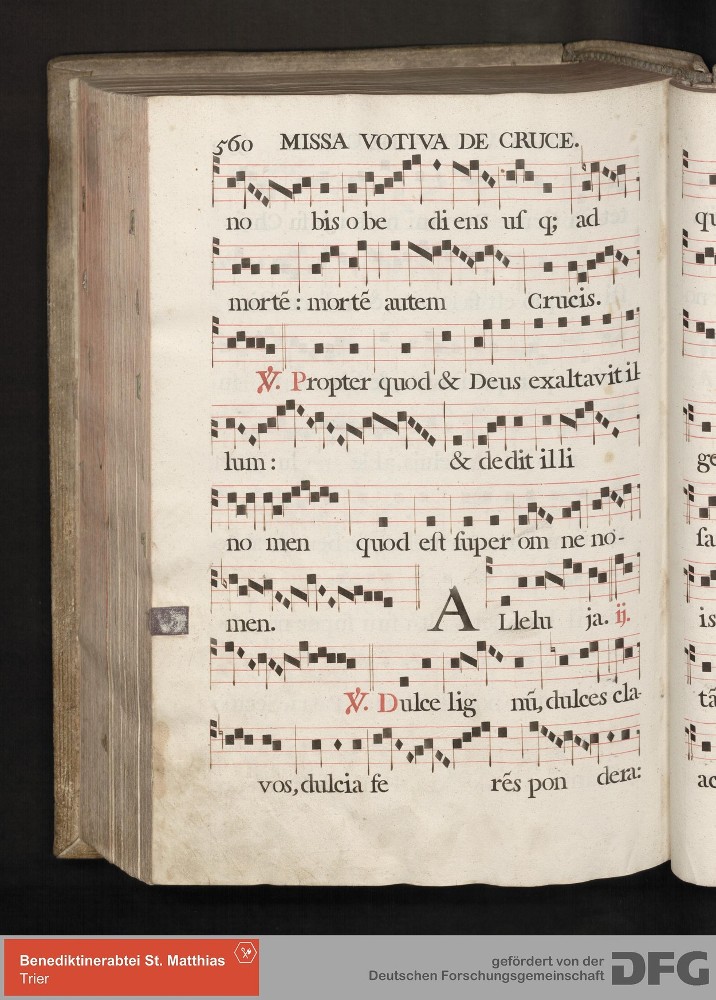 560 MISSA VOTIVA DE CRUCE.
no bis obe diens uſ q; ad
mortẽ: mortẽ autem Crucis.
℣. Propter quod & Deus exaltavit il-
lum: & dedit illi
no men quod eſt ſuper om ne no-
men. ALlelu ja. ij.
℣. Dulce lig nũ, dulces cla-
vos, dulcia fe rẽs pon dera:
qu
ge
ſa
is
tã
ac
Benediktinerabtei St. Matthias
Trier
gefördert von der
Deutschen Forschungsgemeinschaft
DFG